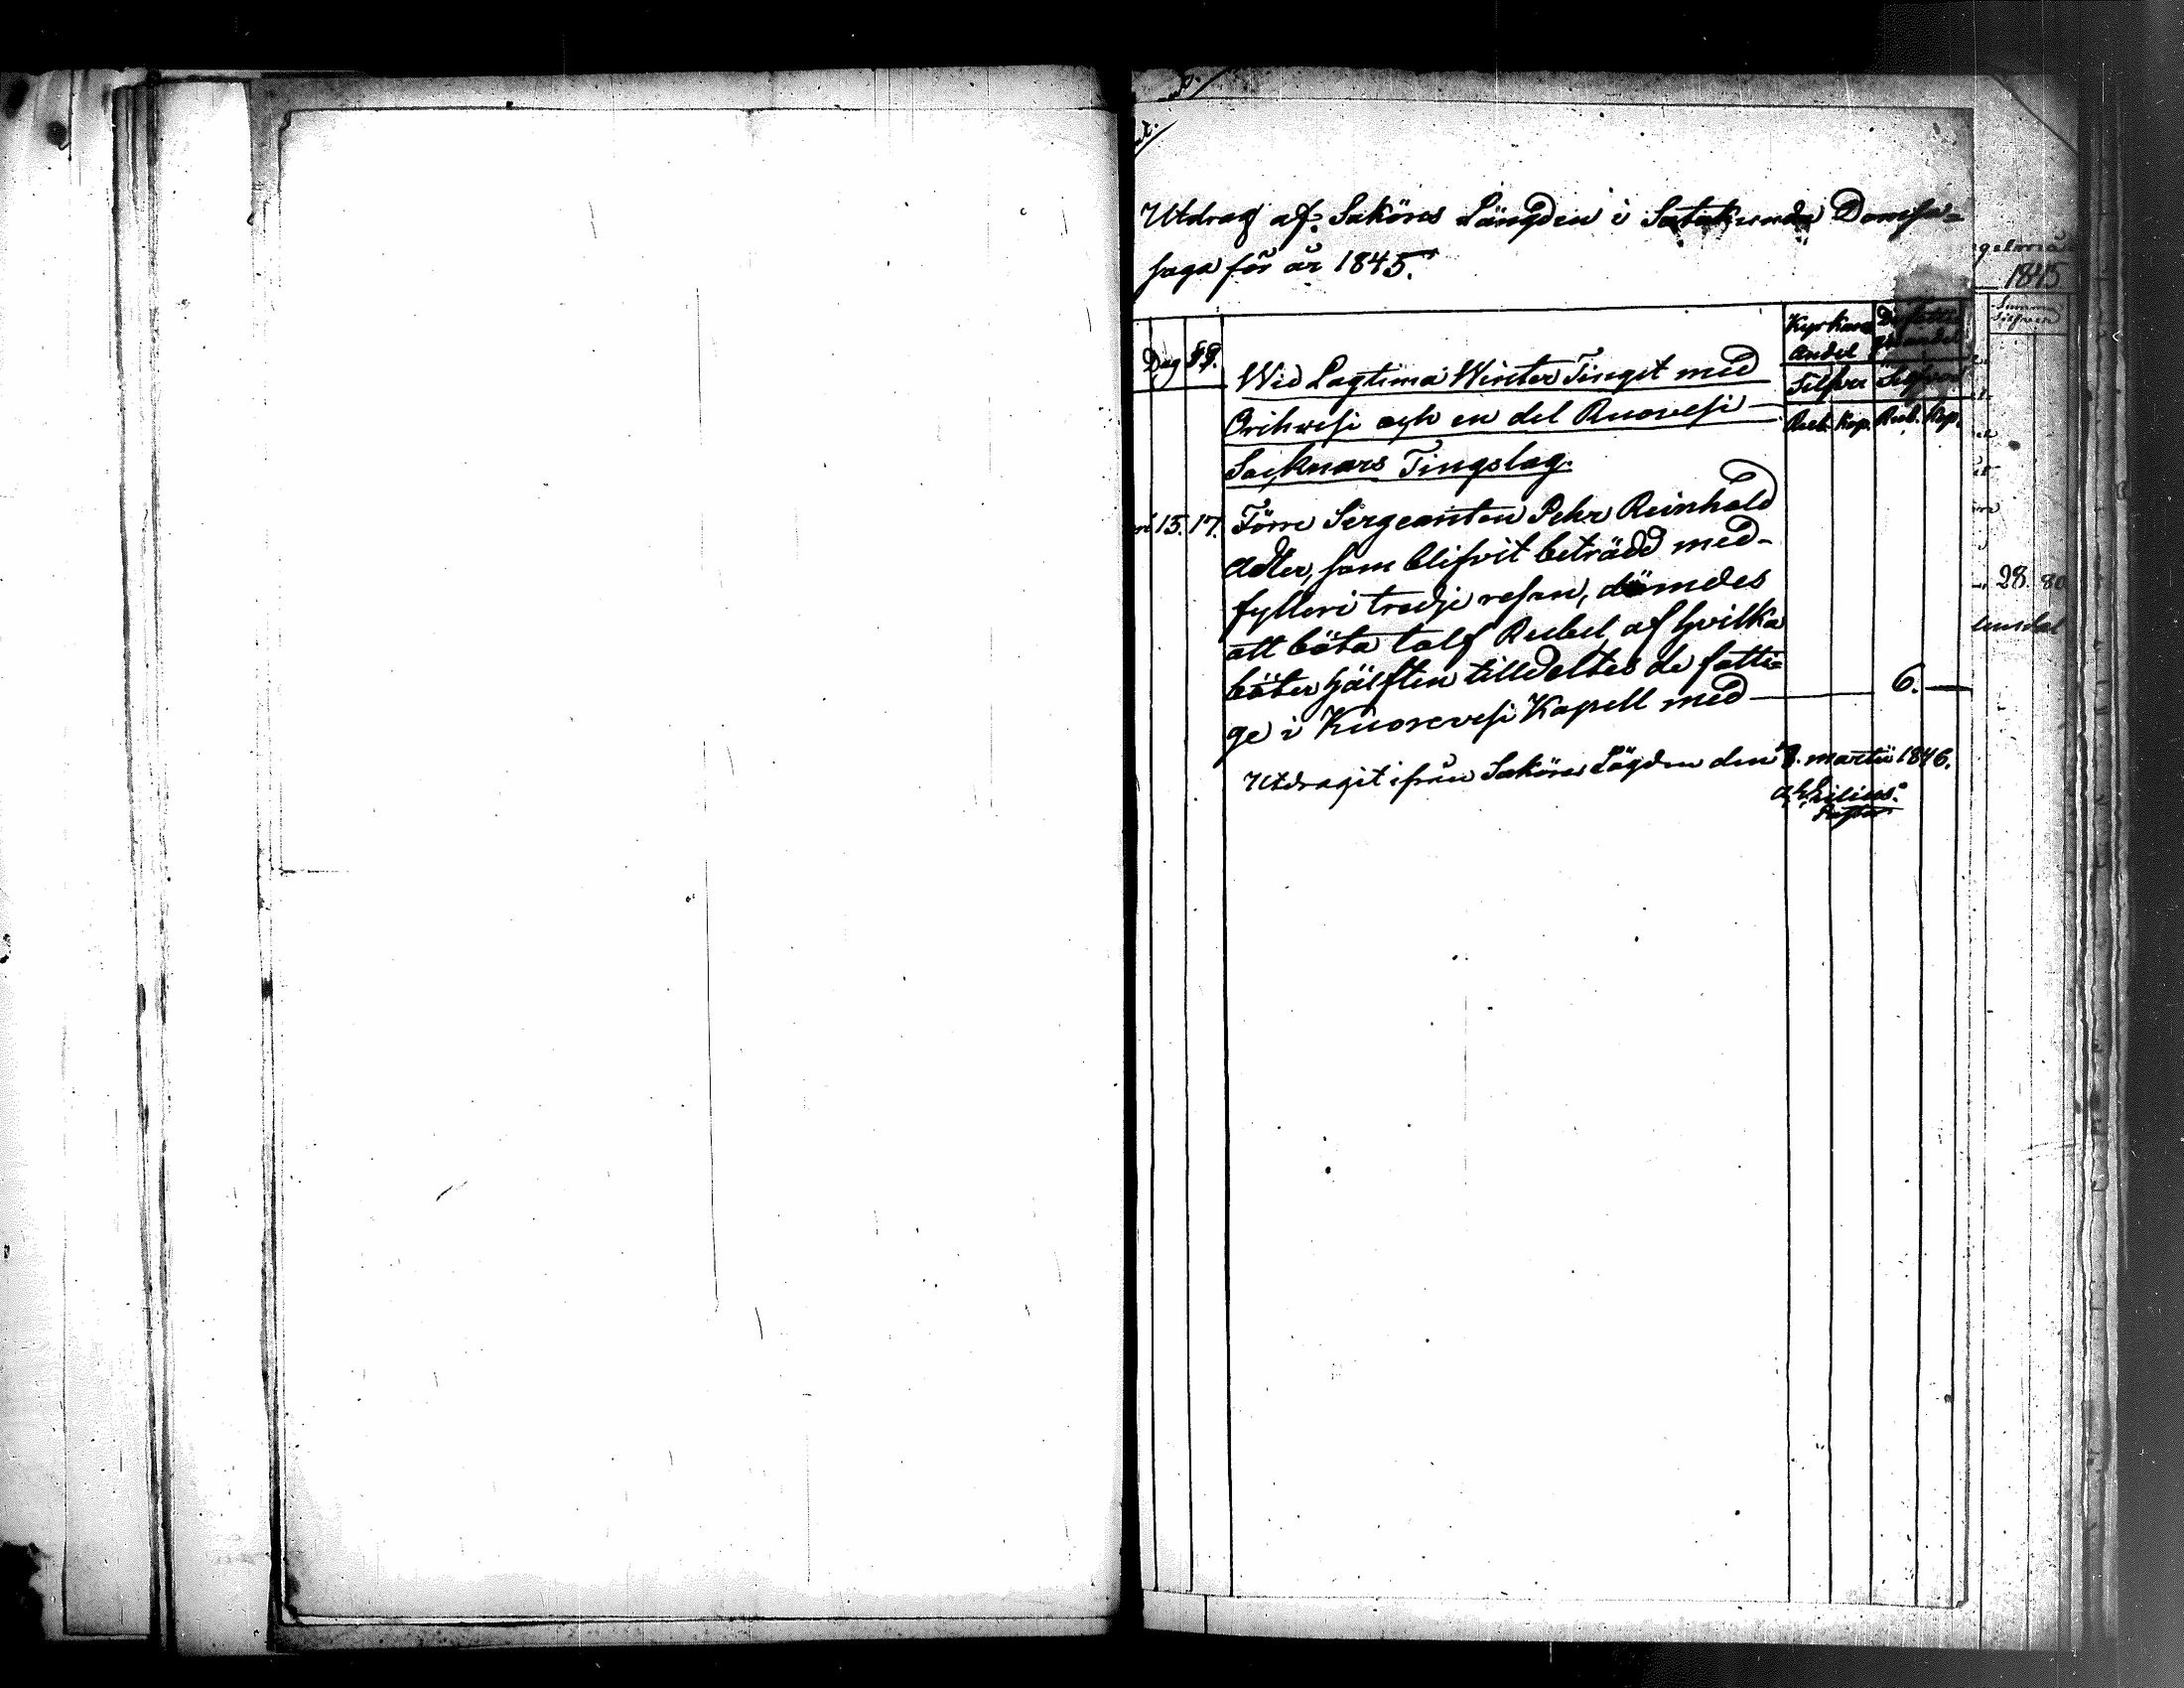 Utdrag af Saköres Längden i Satakunda Domsa-
saga för år 1845.
Dag §§. Wid Lagtima Winter Tinget med
Kyrkans Andel De fattigas andel
Silfver Silfver
Rub. Kop. Rub. Kop.
Orihvesi och en del Ruovesi
Socknars Tingslag.
15. 17. Förre Sergeanten Pehr Reinhold
Adler, som blifvit beträdd med
fylleri tredje resan, dömdes
att böta tolf Rubel, af hvilka
böter hälften tilldeltes de fatti-
ge i Kuorevesi Kapell med 6.
Utdragit ifrån Saköres Lägden den 8. martii 1846.
1845
Summa
Silfver
28. 80